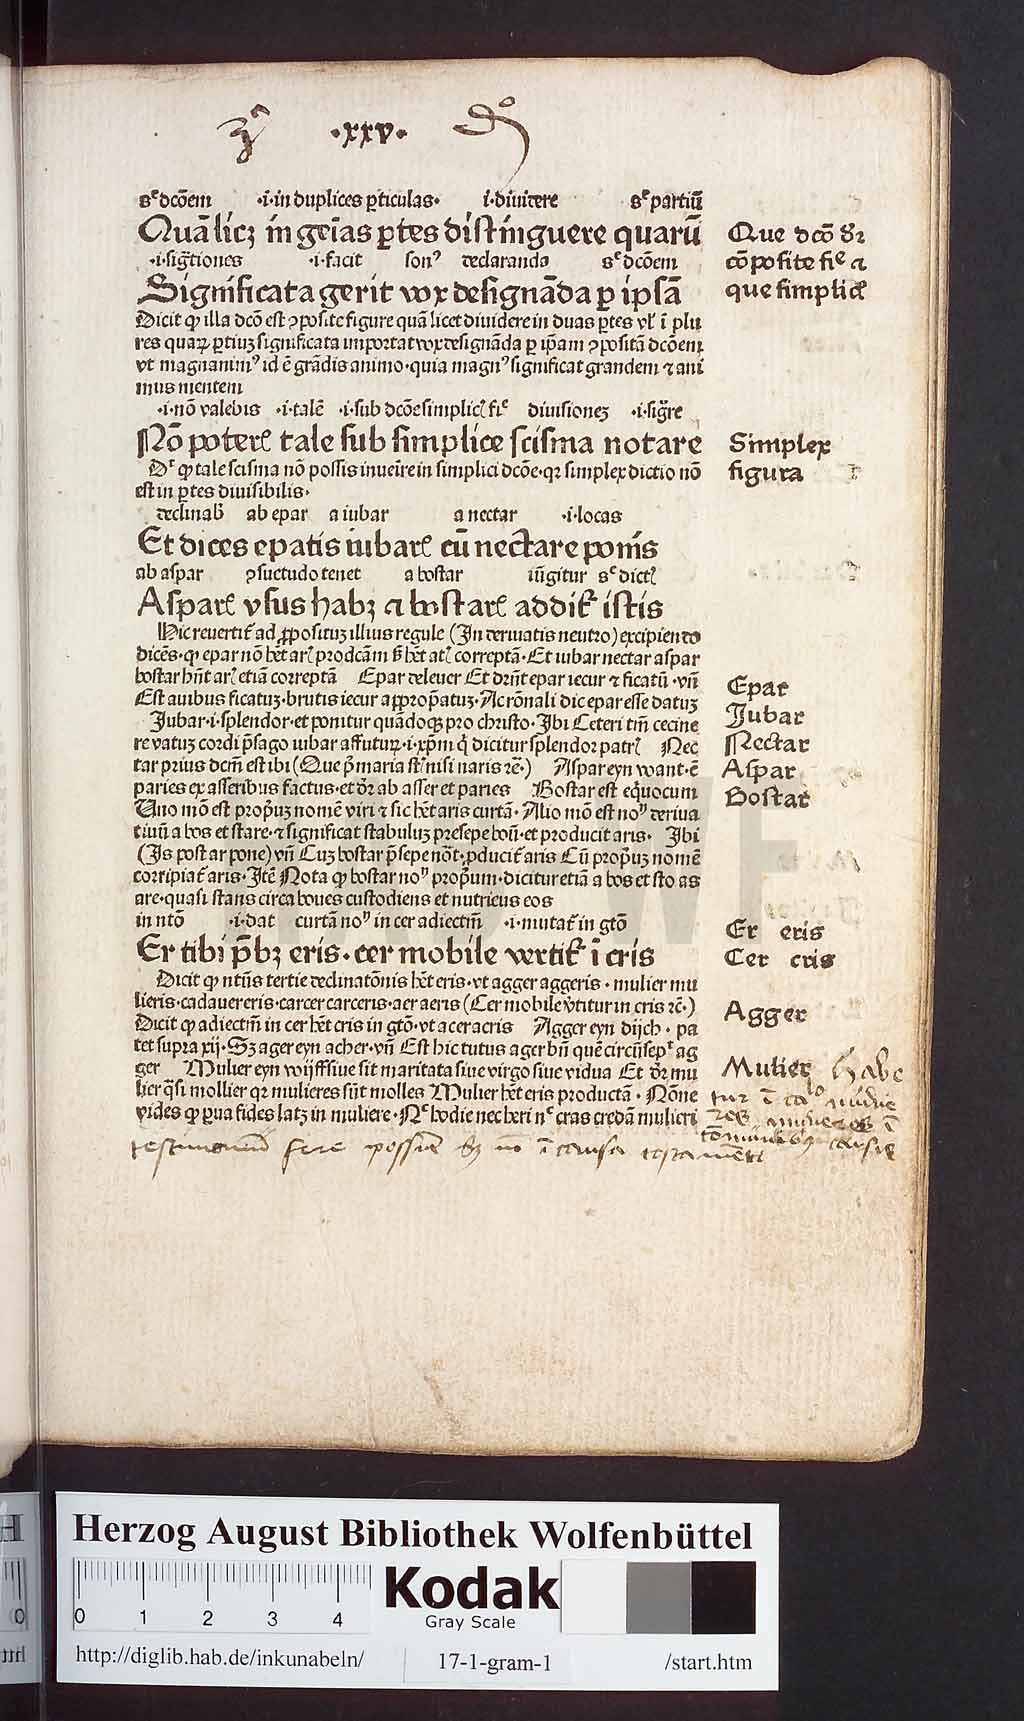 ·xxv·
sᵉ dcōem ·i·in duplices ꝑticulas· i·diuidere sᵉ partiū
Quā licꝫ in geīas ꝑtes distinguere quarū
·i·sigtiones ·i·facit sonꝰ declaranda sᵉ dcōem
Significata gerit vox designāda ꝑ ipsā
Dicit ꝙ illa dcō est ꝯposite figure quā licet diuidere in duas ꝑtes vl' ī plu
res quaꝝ ꝑtiuꝫ significata importat vox designāda ꝑ ip̄am ꝯpositā dcōem
vt magnanimꝰ id ē grādis animo·quia magnꝰ significat grandem ⁊ ani
mus mentem
·i·nō valebis ·i·talē ·i·sub dcōe simplicꝭ fiᵉ diuisionez ·i·sigr̄e
Nō poterꝭ tale sub simplice scisma notare
Dᵗ ꝙ tale scisma nō possis inueīre in simplici dcōe·qꝛ simplex dictio nō
est in ꝑtes diuisibilis·
declinab' ab epar a iubar a nectar ·i·locas
Et dices epatis iubarꝭ cū nectare ponīs
ab aspar ꝯsuetudo tenet a bostar iūgitur sᵉ dictꝭ
Asparꝭ vsus habꝫ ⁊ bostarꝭ addit᷑ istis
Hic reuertit᷑ ad ꝓposituꝫ illius regule (In deriuatis neutro) excipiendo
dicēs·ꝙ epar nō hēt arꝭ prodcām ẜ hēt atꝭ correptā·Et iubar nectar aspar
bostar hn̄t arꝭ etiā correptā Epar deleuer Et dr̄nt epar iecur ⁊ ficatū·vn̄
Est auibus ficatuꝫ·brutis iecur appropatuꝫ·Acrōnali dic epar esse datuꝫ
Iubar·i·splendor·et ponitur quādoqꝫ pro christo·Ibi Ceteri tm̄ cecine
re vatuꝫ cordi p̄sago iubar affuturꝝ·i·xp̄m q̇ dicitur splendor patrꝭ Nec
tar prius dcm̄ est ibi (Que p̄ maria stꝭ nisi naris ⁊c̄·) Aspar eyn want·ē
paries ex asseribus factus·et dr̄ ab asser et paries Bostar est equocum
Uno mō est propriuꝫ nomē viri ⁊ sic hēt aris curtā·Alio mō est noᵐ deriua
tiuū a bos et stare·⁊ significat stabuluꝫ presepe boū·et producit aris· Ibi
(Is post ar pone) vn̄ Cuꝫ bostar p̄sepe nōt·ꝓducit᷑ aris Cū propriuꝫ nomē
corripiat᷑ aris·Itē Nota ꝙ bostar noᵐ proprium·dicitur etiā a bos et sto as
are·quasi stans circa boues custodiens et nutriens eos
in ntō ·i·dat curtā noᵐ in cer adiectm̄ ·i·mutat᷑ in gtō
Er tibi p̄bꝫ eris·cer mobile vertit᷑ ī cris
Dicit ꝙ ntūs tertie declinatōnis hēt eris·vt agger aggeris·mulier mu
lieris·cadauer eris·carcer carceris·aer aeris (Cer mobile v̄titur in cris ⁊c̄·)
Dicit ꝙ adiectm̄ in cer hēt cris in gtō·vt acer acris Agger eyn dijch·pa
tet supra xij·Sꝫ ager eyn acher·vn̄ Est hic tutus ager bn̄ quē circūsepᵗ ag
ger Mulier eyn wijff siue sit maritata siue virgo siue vidua Et dr̄ mu
lier q̄si mollier qꝛ mulieres sūt molles Mulier hēt eris productā·Nōne
vides ꝙ ꝑua fides latꝫ in muliere·Nᵉ hodie nec heri nᵉ cras credā mulieri
Que dcō dꝛ
cōposite fiᵉ ⁊
que simplicꝭ
Simplex
figura
Epar
Jubar
Nectar
Aspar
Bostar
Er eris
Cer cris
Agger
Mulier habe
Herzog August Bibliothek Wolfenbüttel
0 1 2 3 4
Kodak
Gray Scale
http://diglib.hab.de/inkunabeln/ 17-1-gram-1 /start.htm